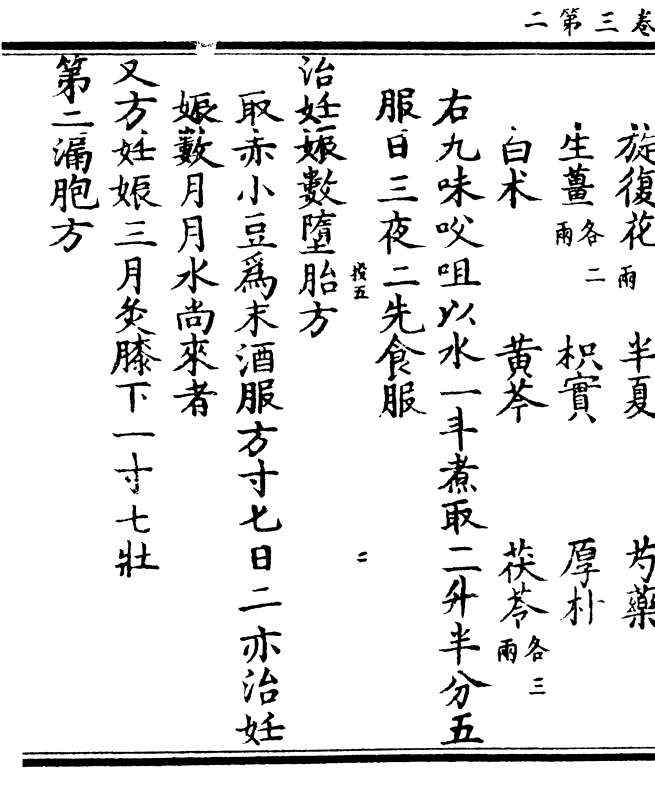 卷三第二
旋復花兩 半夏 芍藥
生薑各二兩 枳實 厚朴
白术 黄芩 茯苓各三兩
右九味㕮咀以水一斗煮取二升半分五
服日三夜二先食服
治妊娠數墮胎方
取赤小豆爲末酒服方寸匕日二亦治妊
娠數月月水尚來者
又方妊娠三月灸膝下一寸七壯
第二漏胞方